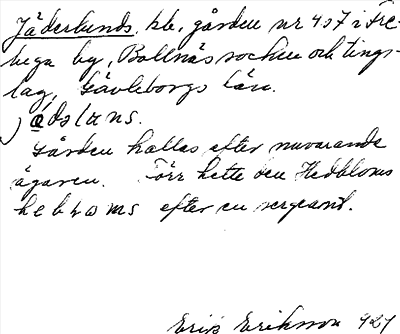 Jäderlunds, hb., gården nr 4 o 7 i Fre-
bega by, Bollnäs socken och tings-
lag, Gävleborgs län.
Gården kallas efter nuvarande
ägaren. Förr hette den Hedbloms
efter en sergeant.
Erik Eriksson 927